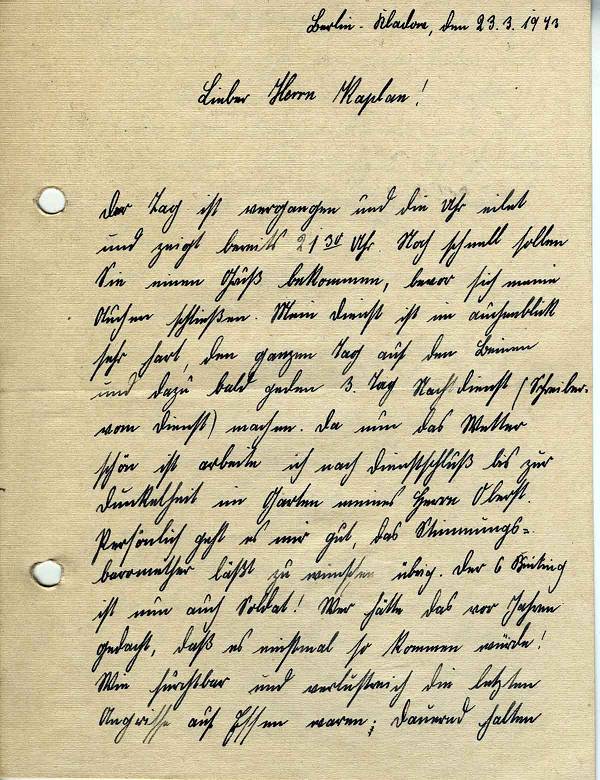 Berlin-Kladow, den 23.3.1943
Lieber Herrn Kaplan!
Der Tag ist vergangen und die Uhr eilet
und zeigt bereits 21 30 Uhr. Noch schnell sollen
Sie einen Gruß bekommen, bevor sich meine
Auchen schließen. Mein Dienst ist im auchenblick
sehr hart, den ganzen Tag auf den Beinen
und dazu bald geden 3. Tag Nachtdienst (Schreiber-
vom Dienst) machen. Da nun das Wetter
schön ist arbeite ich nach Dienstschluß bis zur
Dunkelheit im Garten meines Herrn Oberst.
Persönlich geht es mir gut, das Stimmungs-
baromether läßt zu wünschen übrig. Der 6
ist nun auch Soldat! Wer hätte das vor Jahren
gedacht, daß es einstmal so kommen würde!
Wie furchtbar und verlustreich die letzten
Angriffe auf Essen waren; dauernd halten